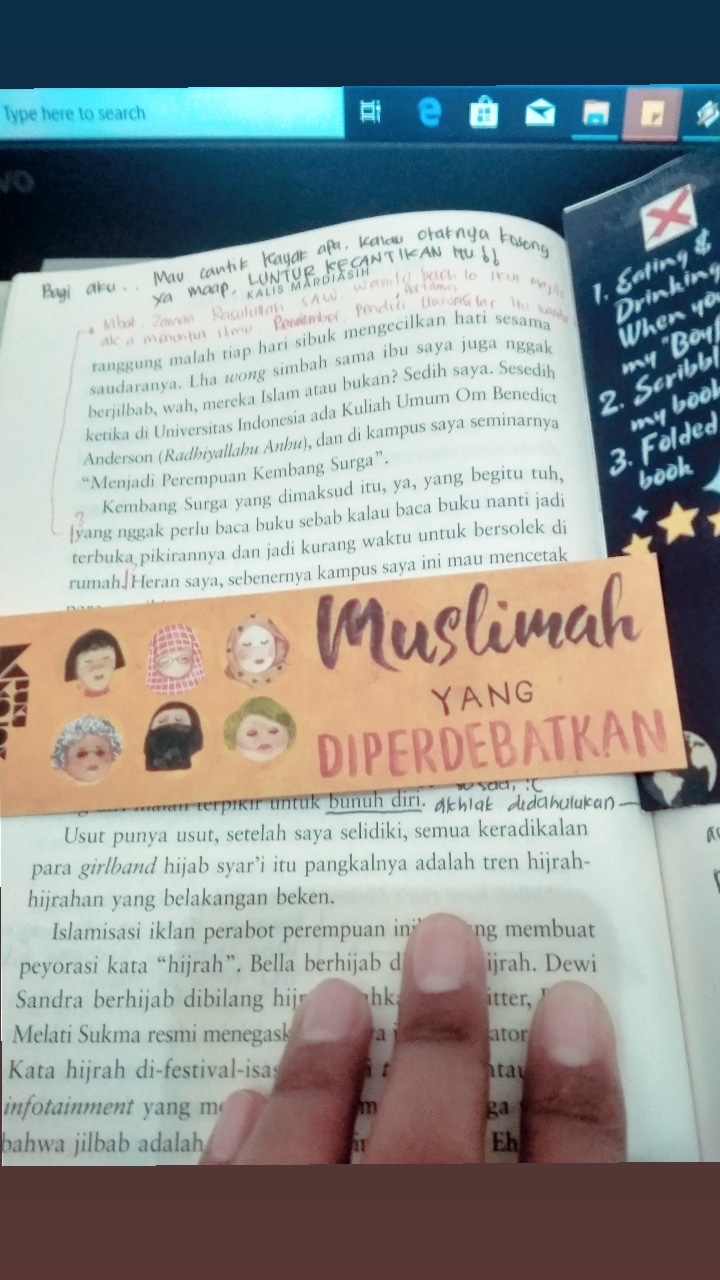 Type here to search
Bagi aku.. Mau cantik kayak apa, kalau otaknya kosong
ya maap, LUNTUR KECANTIKAN MU !!
KALIS MARDIASIH
Mbat. Zaman Rasulullah SAW. wanita
Pertama
menuntut ilmu. Pendiri Universitas itu
tanggung malah tiap hari sibuk mengecilkan hati sesama
saudaranya. Lha wong simbah sama ibu saya juga nggak
berjilbab, wah, mereka Islam atau bukan? Sedih saya. Sesedih
ketika di Universitas Indonesia ada Kuliah Umum Om Benedict
Anderson (Radhiyallahu Anhu), dan di kampus saya seminarnya
"Menjadi Perempuan Kembang Surga".
Kembang Surga yang dimaksud itu, ya, yang begitu tuh,
yang nggak perlu baca buku sebab kalau baca buku nanti jadi
terbuka pikirannya dan jadi kurang waktu untuk bersolek di
rumah. Heran saya, sebenernya kampus saya ini mau mencetak
Muslimah
YANG
DIPERDEBATKAN
terpikir untuk bunuh diri. akhlak didahulukan
Usut punya usut, setelah saya selidiki, semua keradikalan
para girlband hijab syar'i itu pangkalnya adalah tren hijrah-
hijrahan yang belakangan beken.
Islamisasi iklan perabot perempuan ini ng membuat
peyorasi kata "hijrah". Bella berhijab d ijrah. Dewi
Sandra berhijab dibilang hijr hk itter,
Melati Sukma resmi menegask a i ator
Kata hijrah di-festival-isas ntau
infotainment yang m m ga
bahwa jilbab adalah Eh
1. Eating &
Drinking
When yo
my "Boy
2. Scribbl
my book
3. Folded
book